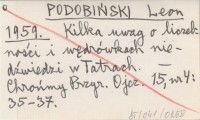 PODOBIŃSKI Leon
1959. Kilka uwag o liczeb-
ności i wędrówkach nie-
dźwiedzi w Tatrach.
Chrońmy Przyr. Ojcz. 15, nr 4:
35-37.